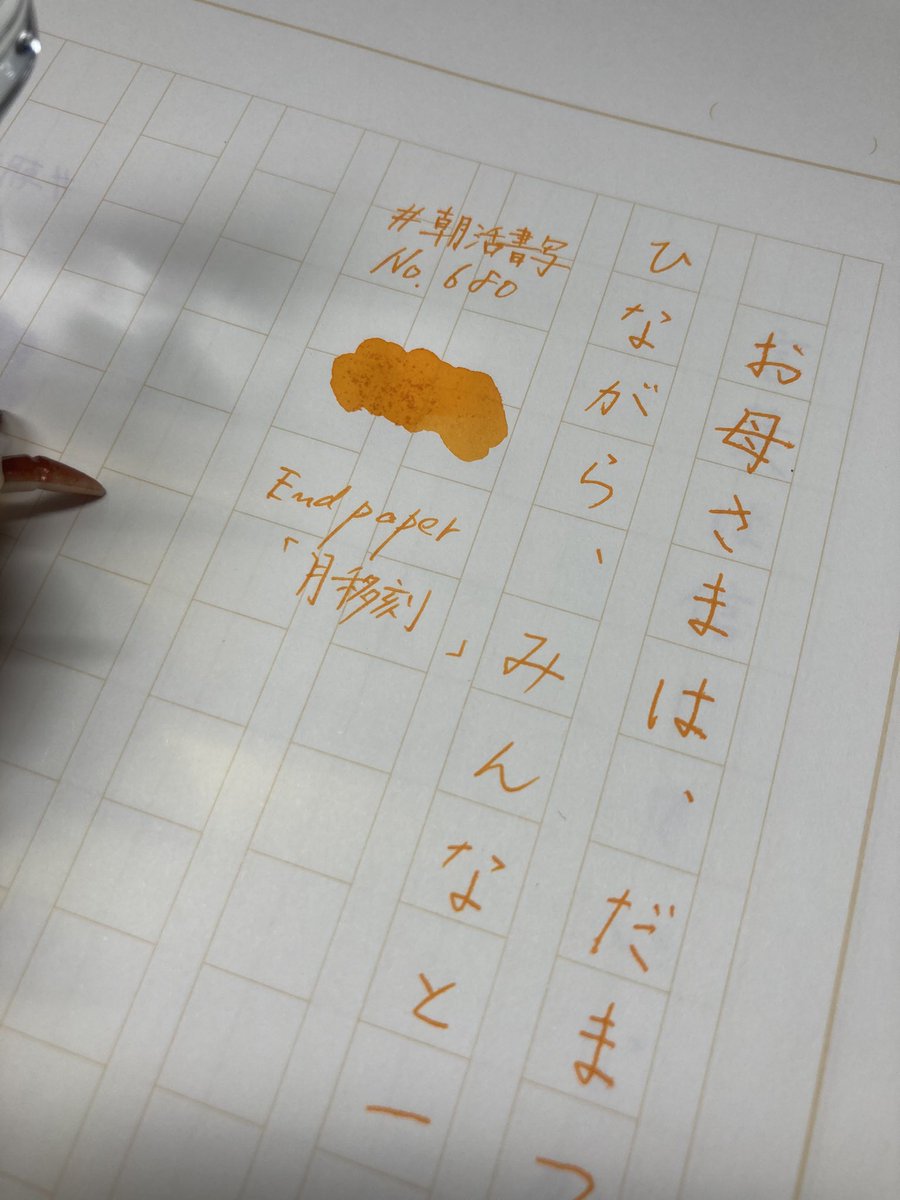 お母さまは、だまつ
ひながら、みんなと一
#朝活書写
No. 680
End paper
「月移刻」